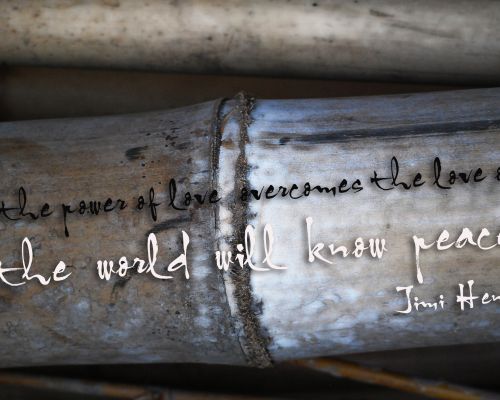 the power of love overcomes the love o
the world will know peac
Jimi Hen